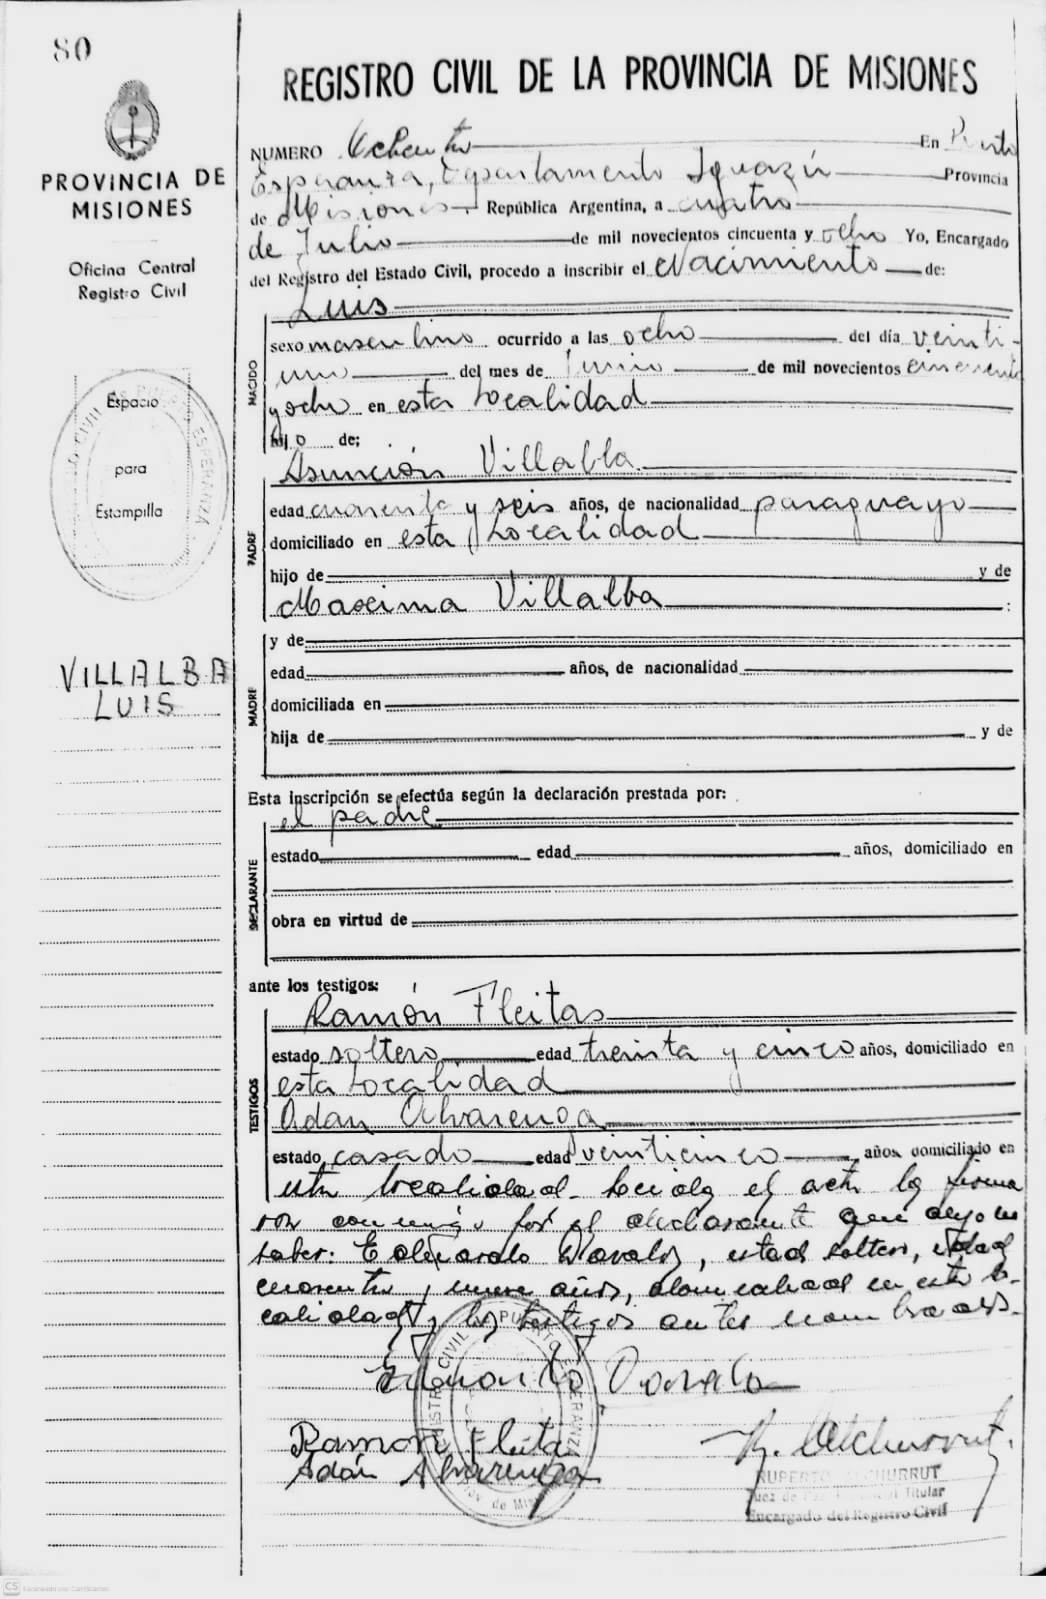 80
PROVINCIA DE
MISIONES
Oficina Central
Registro Civil
Espacio
para
Estampilla
VILLALBA
LUIS
REGISTRO CIVIL DE LA PROVINCIA DE MISIONES
NUMERO Ochenta En Puerto
Esperanza, Departamento Iguazú Provincia
de Misiones República Argentina, a cuatro
de Julio de mil novecientos cincuenta y ocho Yo, Encargado
del Registro del Estado Civil, procedo a inscribir el Nacimiento de:
Luis
NACIDO
sexo masculino ocurrido a las ocho del día veinti-
uno del mes de Junio de mil novecientos cincuenta
y ocho en esta localidad
hijo de:
Asunción Villalba
PADRE
edad cuarenta y seis años, de nacionalidad paraguayo
domiciliado en esta localidad
hijo de y de
Maxima Villalba
MADRE
y de
edad años, de nacionalidad
domiciliada en
hija de y de
Esta inscripción se efectúa según la declaración prestada por:
el padre
DECLARANTE
estado edad años, domiciliado en
obra en virtud de
ante los testigos:
Ramón Fleitas
TESTIGOS
estado soltero edad treinta y cinco años, domiciliado en
esta localidad
Adan Alvarenga
estado casado edad veinticinco años domiciliado en
esta localidad el acta la firma
ron conmigo por el declarante que
saber: Davalos, estad soltero, edad
cuarenta y nueve años, domiciliad en esta lo-
calidad y los testigos antes nombrados.
Davalo
Ramon Fleita
Adán Alvarenga
RUPERTO ALCHURRUT
Juez de Paz Titular
Encargado del Registro Civil
REGISTRO CIVIL PUERTO ESPERANZA
Prov. de Misiones
CS Escaneado con CamScanner